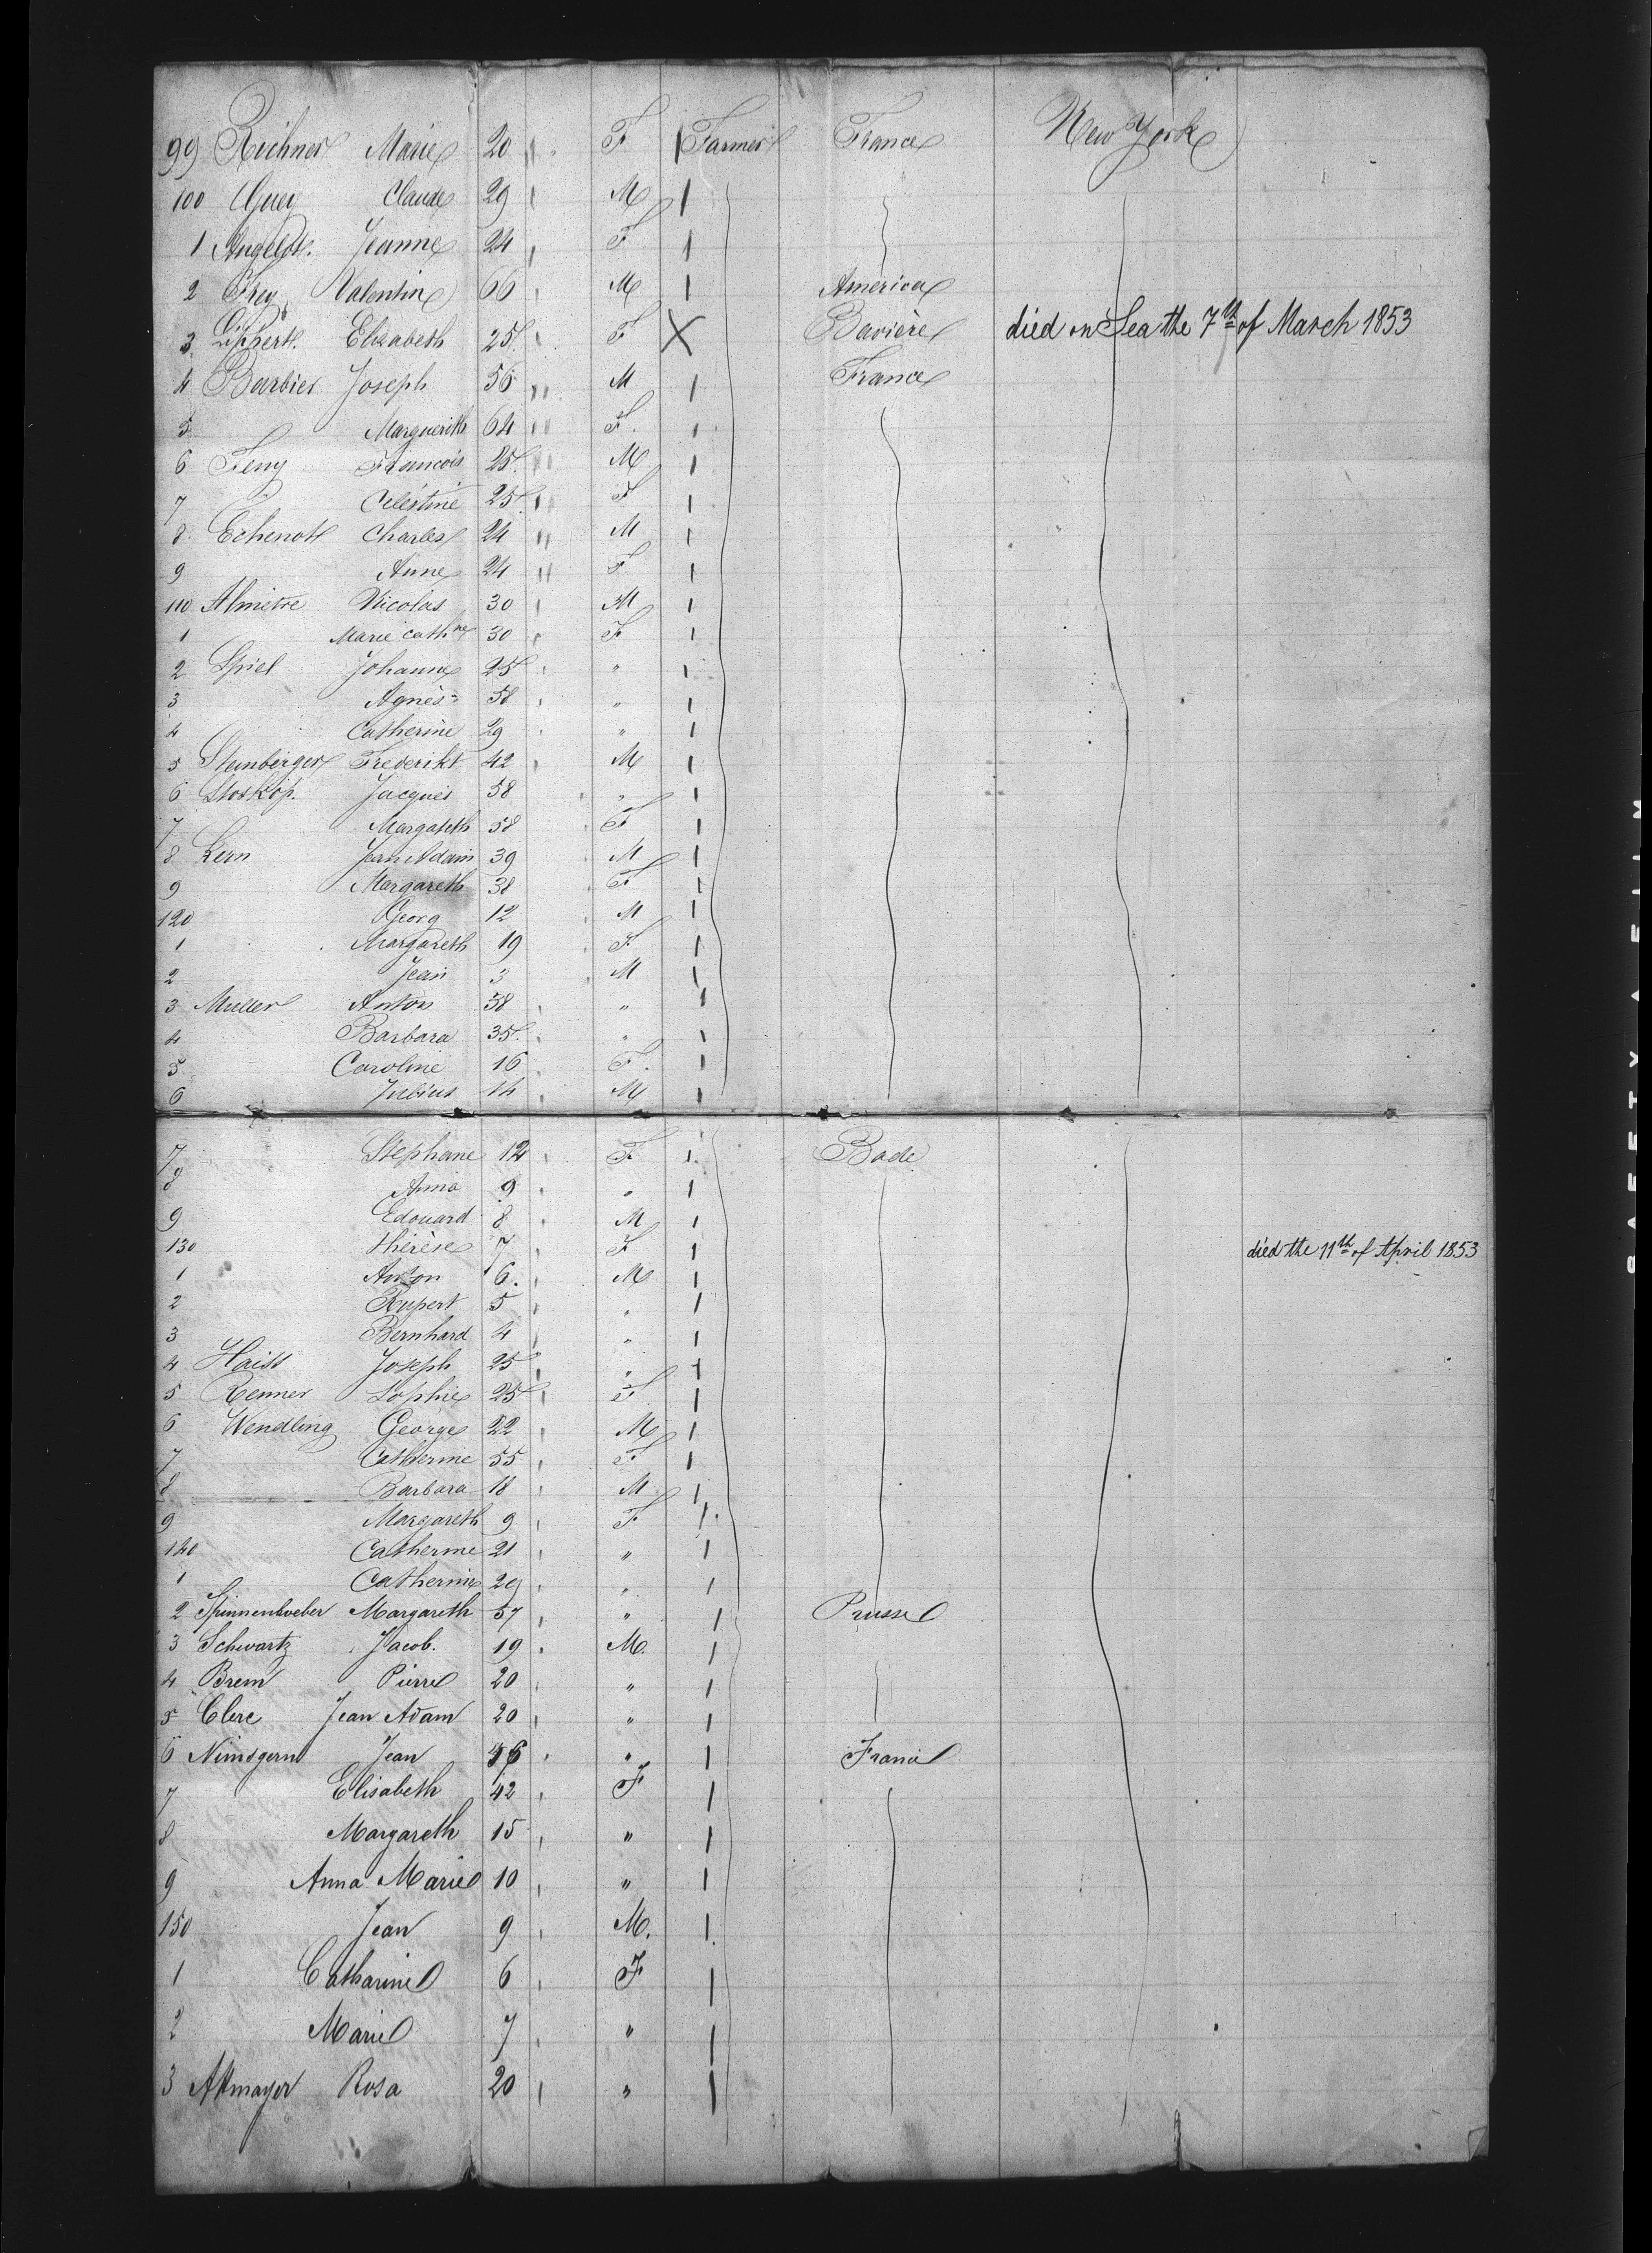 99 Richner Marie 20 " F | Farmer France New York
100 Guey Claude 29 M |
1 Angelot. Jeanne 24 F |
2 Frey Valentin 66 M | America
3 Elizabeth 25 F X Bavière died on Sea the 7th of March 1853
4 Barbier Joseph 56 " M | France
5 Marguerith 64 " F |
6 Feny Francois 25 " M |
7 Celéstine 25 " F |
8 Echenot Charles 24 " M |
9 Anne 24 " F |
110 Almetre Nicolas 30 M |
1 Marie cathne 30 F |
2 Spiel Johanne 25 " |
3 Agnès 58 " |
4 Catherine 29 " |
5 Steinberger Frederikt 42 M |
6 Stoskop. Jacques 58 " |
7 Margareth 58 F |
8 Kern Jean Adam 39 M |
9 Margareth 38 F |
120 Georg 12 M |
1 Margareth 19 F |
2 Jean 3 M |
3 Muller Anton 38 " |
4 Barbara 35 " |
5 Caroline 16 F |
6 Julius 14 M |
7 Stephane 12 F | Bade
8 Anna 9 " |
9 Edouard 8 M |
130 thérèse 7 F | died the 11th of April 1853
1 Anton 6 M |
2 Rupert 5 " |
3 Bernhard 4 " |
4 Haist Joseph 25 " |
5 Renner Sophie 25 F |
6 Wendling George 22 M |
7 Catherine 55 F |
8 Barbara 18 M |
9 Margareth 9 F |
140 Catherine 21 " |
1 Catherine 29 " |
2 Spinnenhveber Margareth 57 " | Prusse
3 Schwartz Jacob. 19 M. |
4 Brem Pierre 20 " |
5 Clerc Jean Adam 20 " |
6 Nimsgern Jean 46 " | France
7 Elisabeth 42 F |
8 Margareth 15 " |
9 Anna Marie 10 " |
150 Jean 9 M. |
1 Catharine 6 F |
2 Marie 7 " |
3 Attmayer Rosa 20 " |
SAFETY FILM